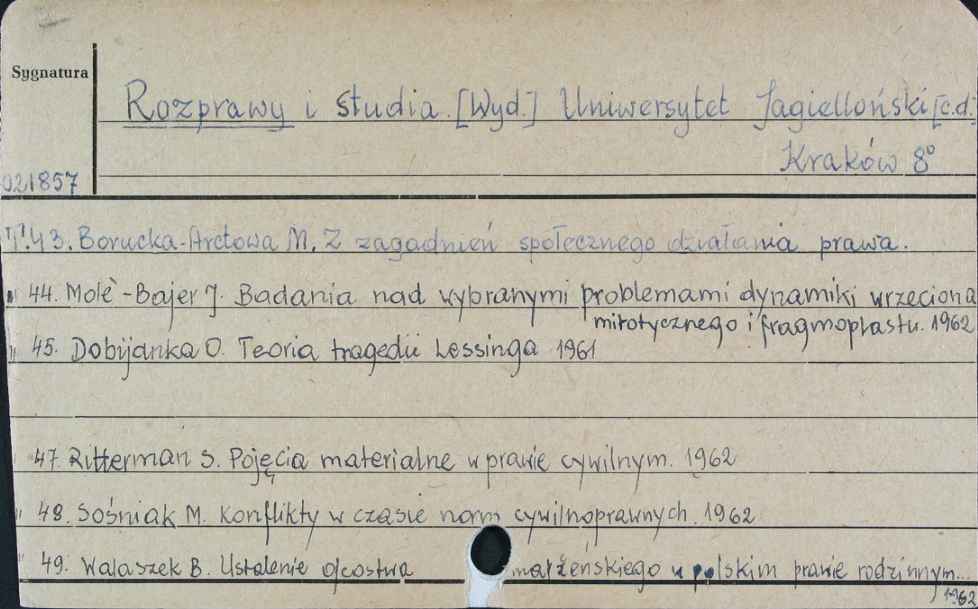 Sygnatura
Rozprawy i studia. [Wyd.] Uniwersytet Jagielloński [c.d.]
Kraków 8°
021857
T. 43. Borucka-Arctowa M. Z zagadnień społecznego działania prawa.
" 44. Molè-Bajer J. Badania nad wybranymi problemami dynamiki wrzeciona
mitotycznego i fragmoplastu. 1962
" 45. Dobijanka O. Teoria tragedii Lessinga 1961
47. Ritterman S. Pojęcia materialne w prawie cywilnym. 1962
" 48. Sośniak M. Konflikty w czasie norm cywilnoprawnych. 1962
" 49. Walaszek B. Ustalenie ojcostwa małżeńskiego w polskim prawie rodzinnym...
1962